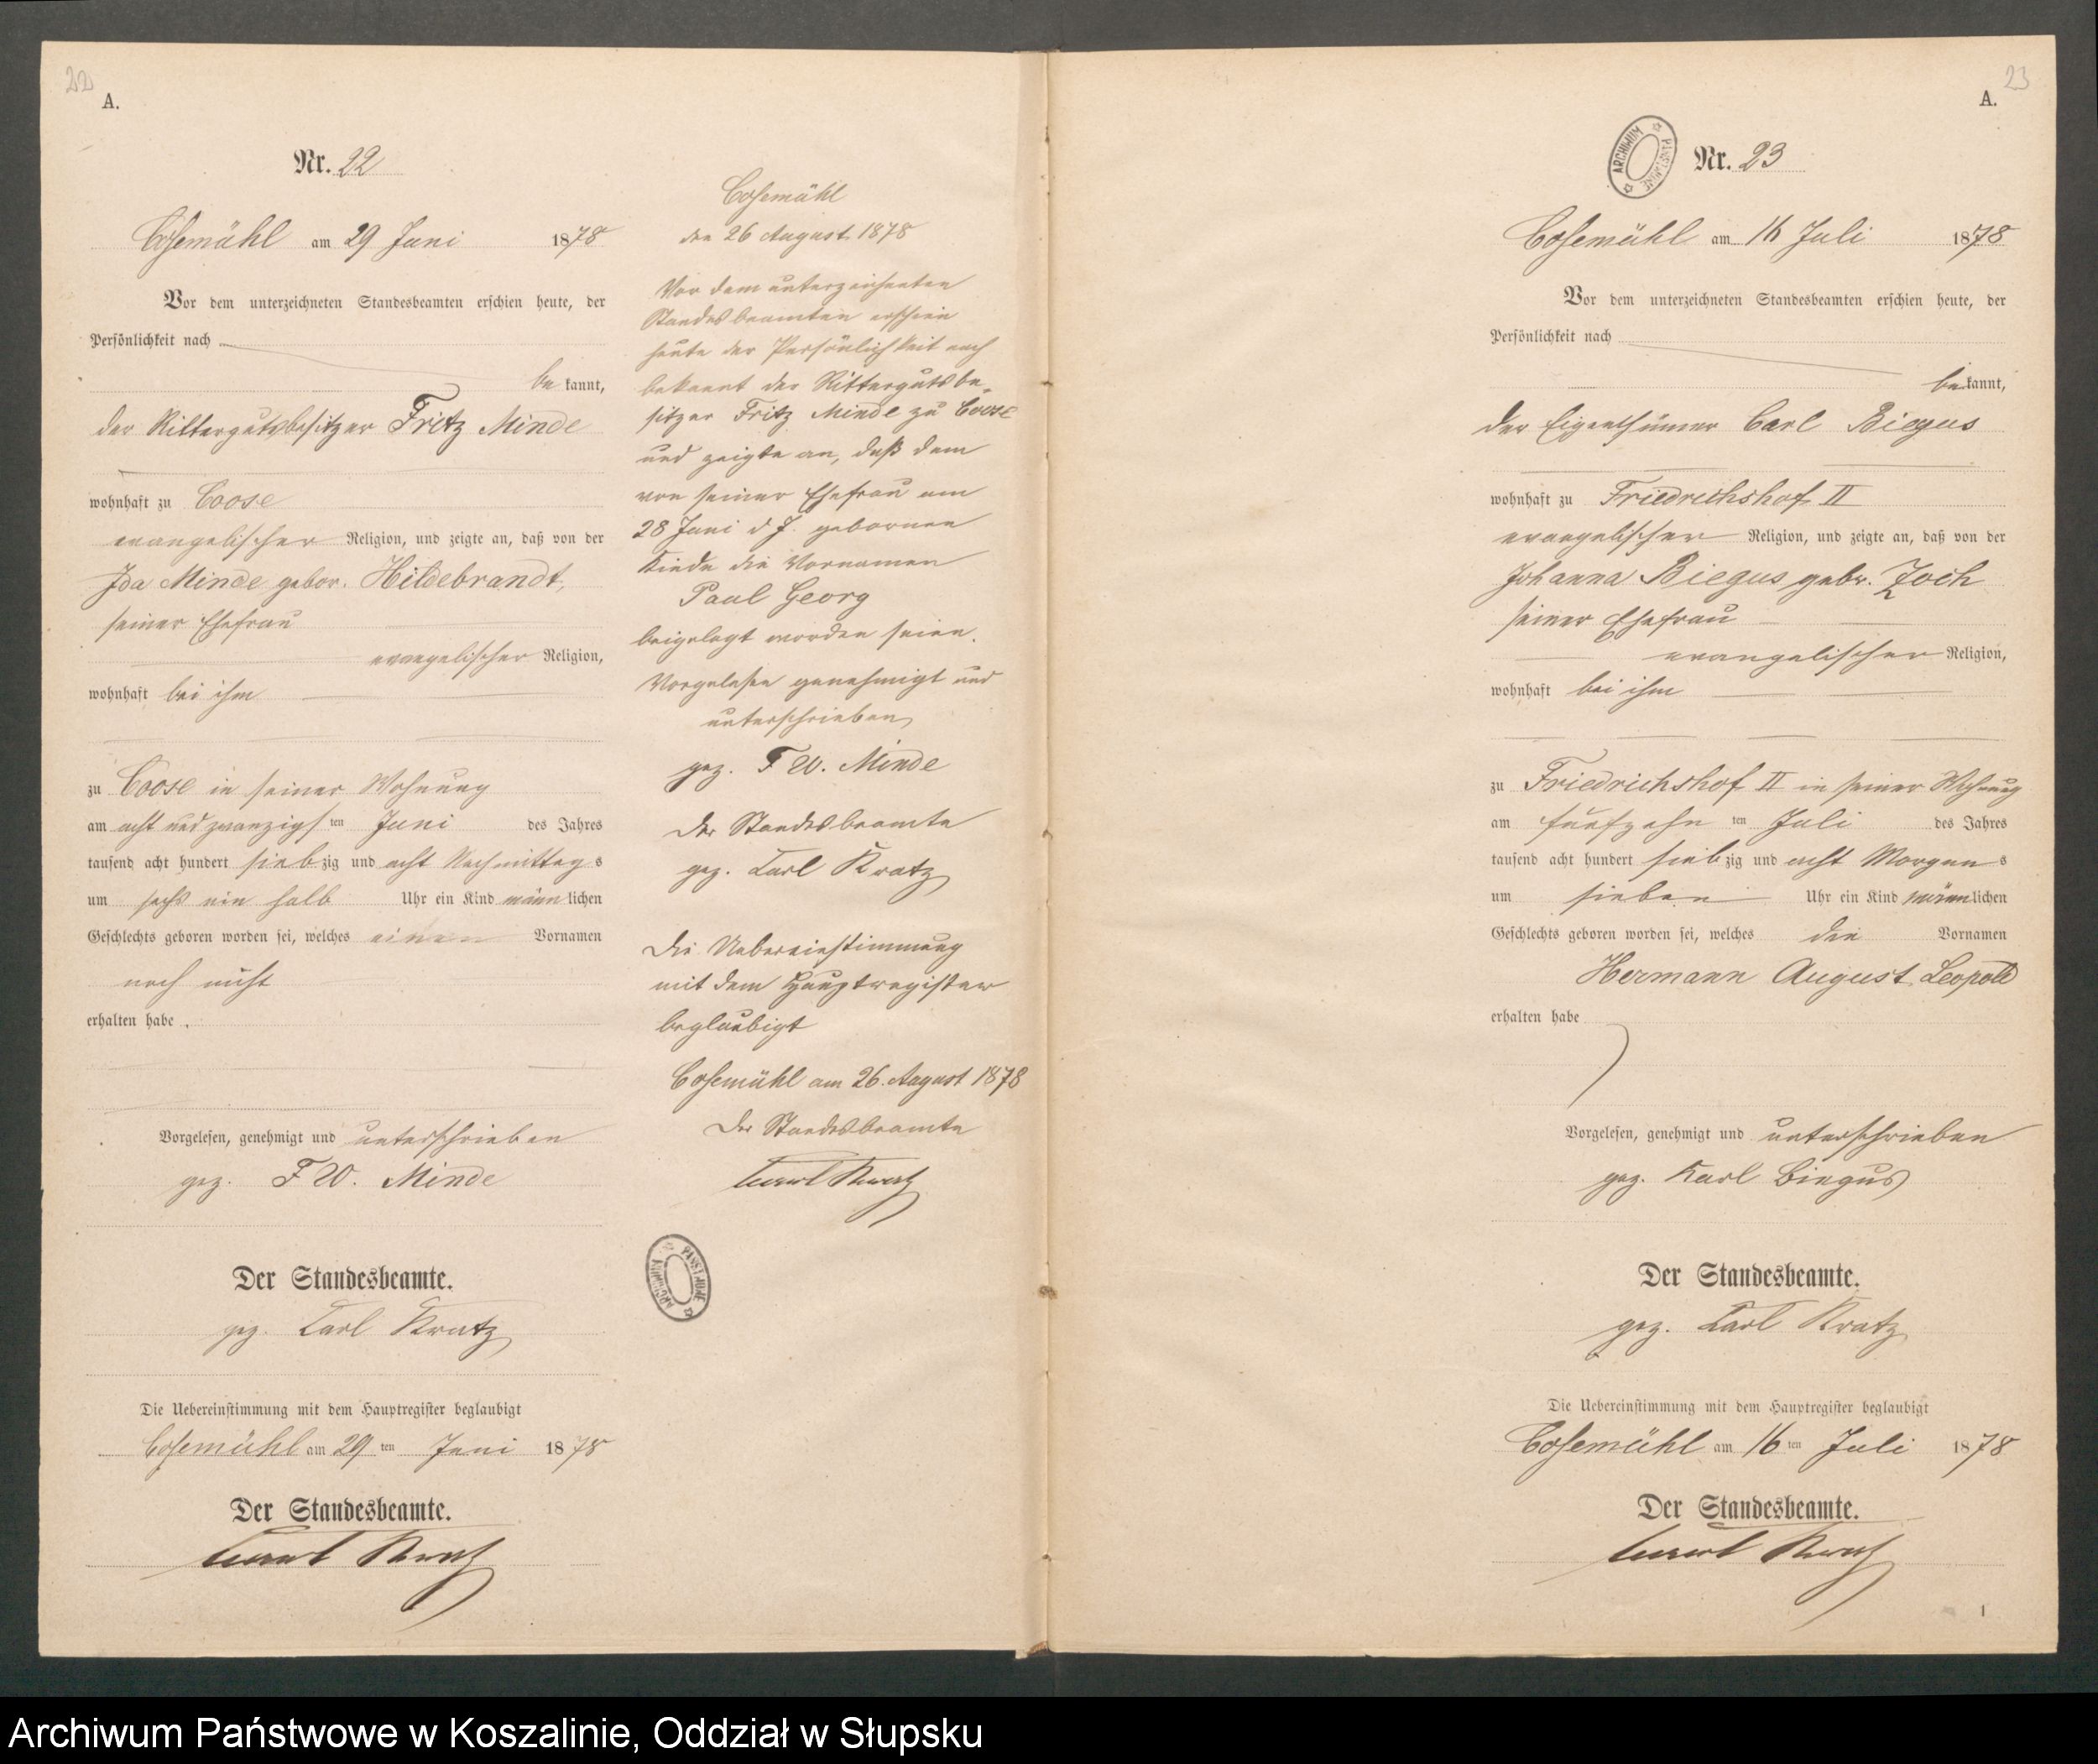 22
A.
Nr. 22
Cosemühl am 29 Juni 1878
Vor dem unterzeichneten Standesbeamten erschien heute, der
Persönlichkeit nach
be kannt,
der Rittergutsbesitzer Fritz Minde
wohnhaft zu Coose
evangelischer Religion, und zeigte an, daß von der
Ida Minde gebor. Hildebrandt,
seiner Ehefrau
evangelischer Religion,
wohnhaft bei ihm
zu Coose in seiner Wohnung
am acht und zwanzigs ten Juni des Jahres
tausend acht hundert sieb zig und acht Nachmittag s
um sechs ein halb Uhr ein Kind männ lichen
Geschlechts geboren worden sei, welches einen Vornamen
noch nicht
erhalten habe .
Vorgelesen, genehmigt und unterschrieben
gez. F W. Minde
Der Standesbeamte.
gez. Carl Kratz
Die Uebereinstimmung mit dem Hauptregister beglaubigt
Cosemühl am 29 ten Juni 1878
Der Standesbeamte.
Carl Kratz
Cosemühl
den 26 August 1878
Vor dem unterzeichneten
Standesbeamten erschien
heute der Persönlichkeit nach
bekannt der Rittergutsbe-
sitzer Fritz Minde zu Coose
und zeigte an, daß dem
von seiner Ehefrau am
28 Juni d J. gebornen
Kinde die Vornamen
Paul Georg
beigelegt worden seien.
Vorgelesen genehmigt und
unterschrieben
gez. F W. Minde
Der Standesbeamte
gez. Carl Kratz
Die Uebereinstimmung
mit dem Hauptregister
beglaubigt
Cosemühl am 26. August 1878
Der Standesbeamte
Carl Kratz
ARCHIWUM PAŃSTWOWE
23
A.
ARCHIWUM PAŃSTWOWE
Nr. 23
Cosemühl am 16 Juli 1878
Vor dem unterzeichneten Standesbeamten erschien heute, der
Persönlichkeit nach
be kannt,
der Eigenthümer Carl Biegus
wohnhaft zu Friedrichshof II
evangelischer Religion, und zeigte an, daß von der
Johanna Biegus gebr. Zoch
seiner Ehefrau
evangelischer Religion,
wohnhaft bei ihm
zu Friedrichshof II in seiner Wohnung
am fünfzehn ten Juli des Jahres
tausend acht hundert sieb zig und acht Morgen s
um sieben Uhr ein Kind männ lichen
Geschlechts geboren worden sei, welches die Vornamen
Hermann August Leopold
erhalten habe
Vorgelesen, genehmigt und unterschrieben
gez. Karl Biegus
Der Standesbeamte.
gez. Carl Kratz
Die Uebereinstimmung mit dem Hauptregister beglaubigt
Cosemühl am 16 ten Juli 1878
Der Standesbeamte.
Carl Kratz
1
Archiwum Państwowe w Koszalinie, Oddział w Słupsku